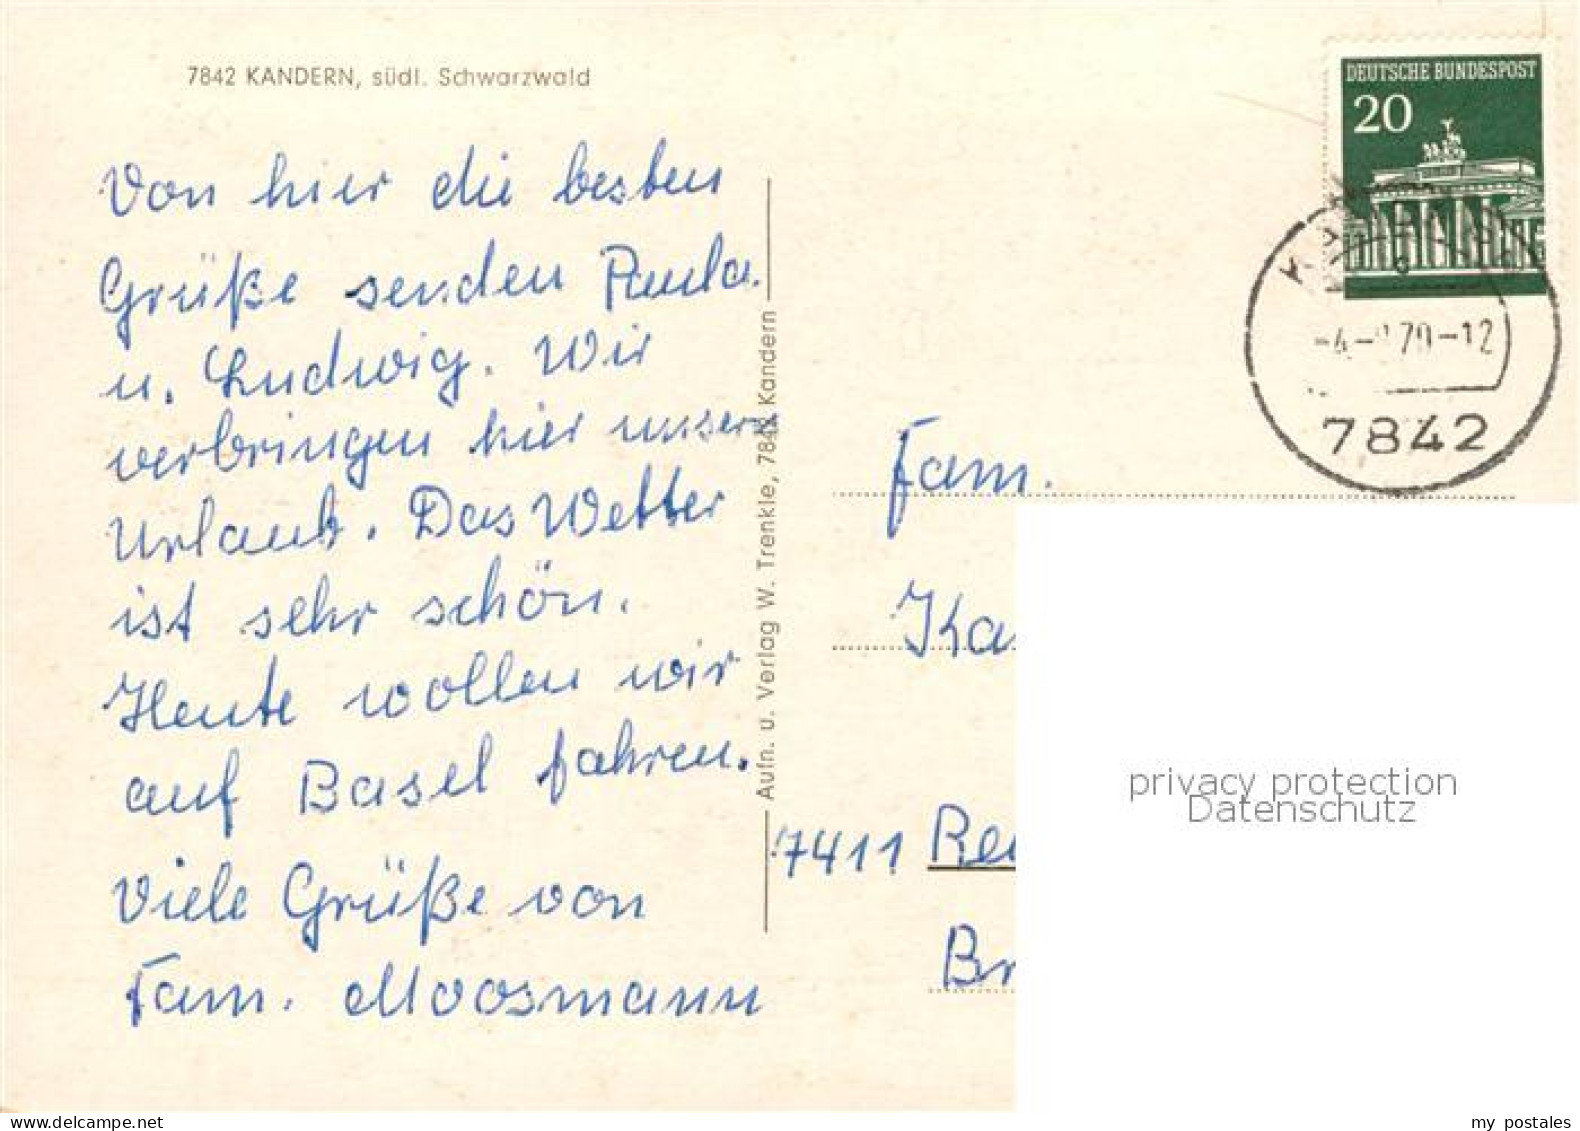 7842 KANDERN, südl. Schwarzwald
DEUTSCHE BUNDESPOST
20
-4.- 70-12
7842
Von hier die besten
Grüße senden Paula
u. Ludwig. Wir
verbringen hier unsern
Urlaub. Das Wetter
ist sehr schön.
Heute wollen wir
auf Basel fahren.
Viele Grüße von
Fam. Moosmann
Aufn. u. Verlag W. Trenkle, 7842 Kandern
Fam.
Ka
7411 Reu
Br
privacy protection
Datenschutz
my postales